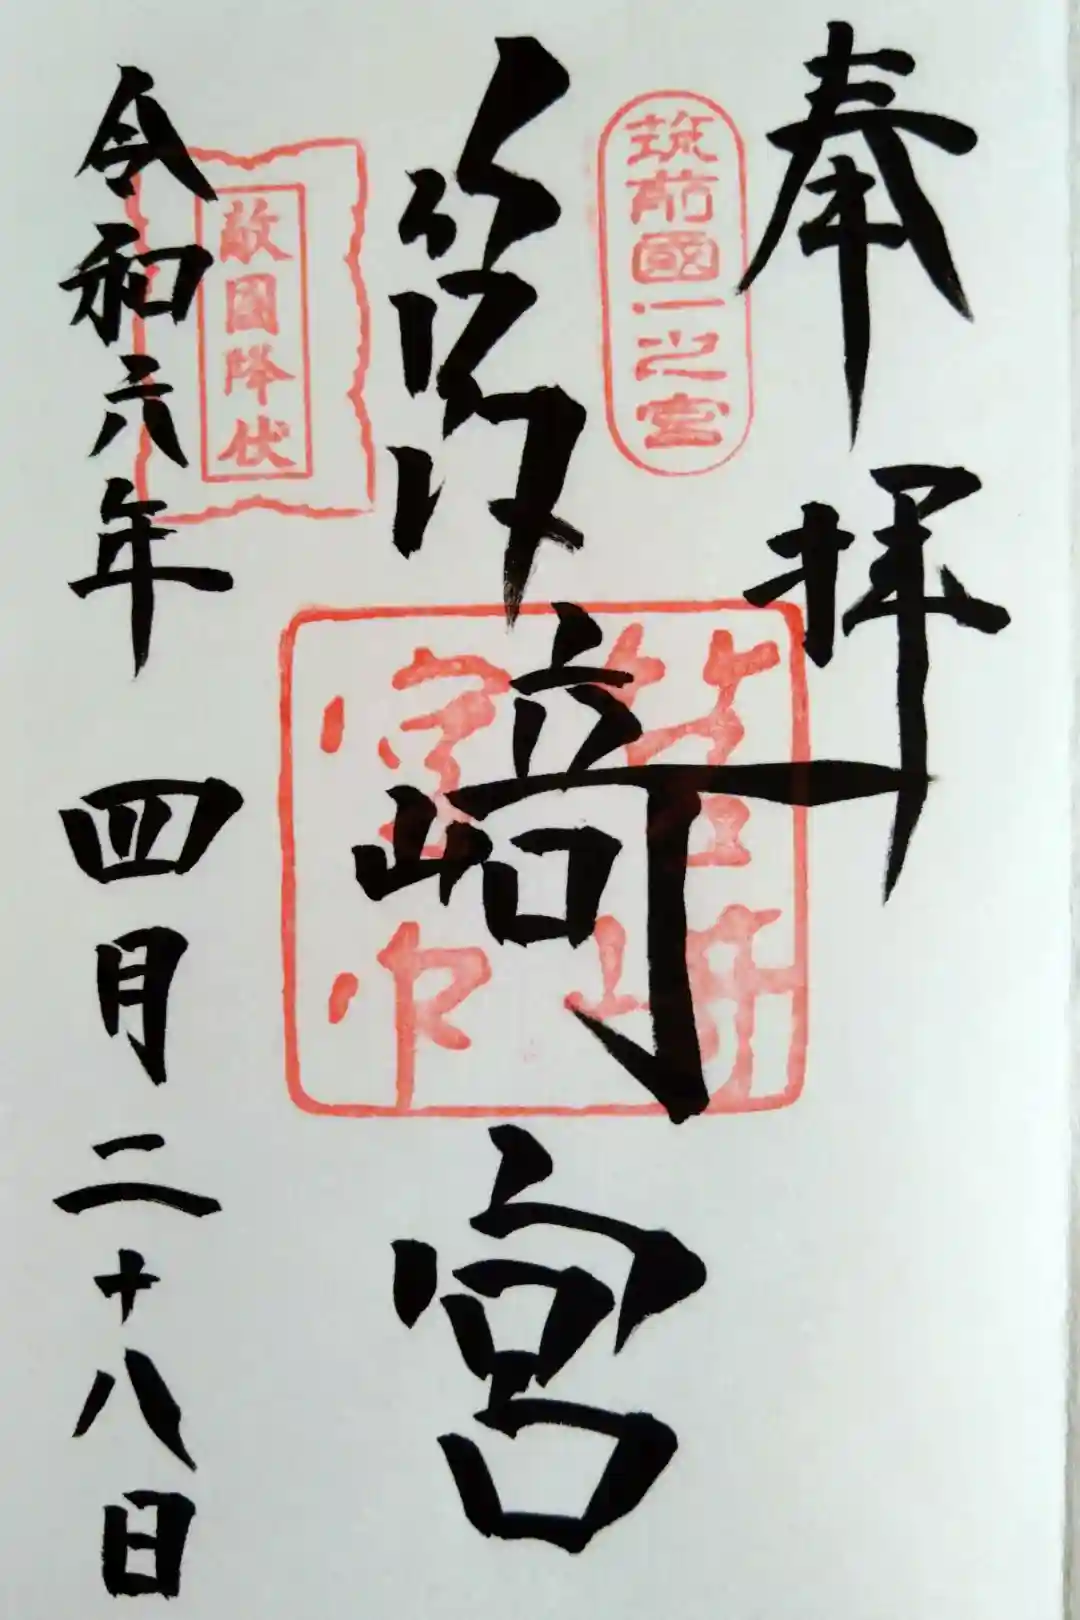 奉拝
筑前國一之宮
筥崎宮
敵国降伏
令和六年 四月二十八日